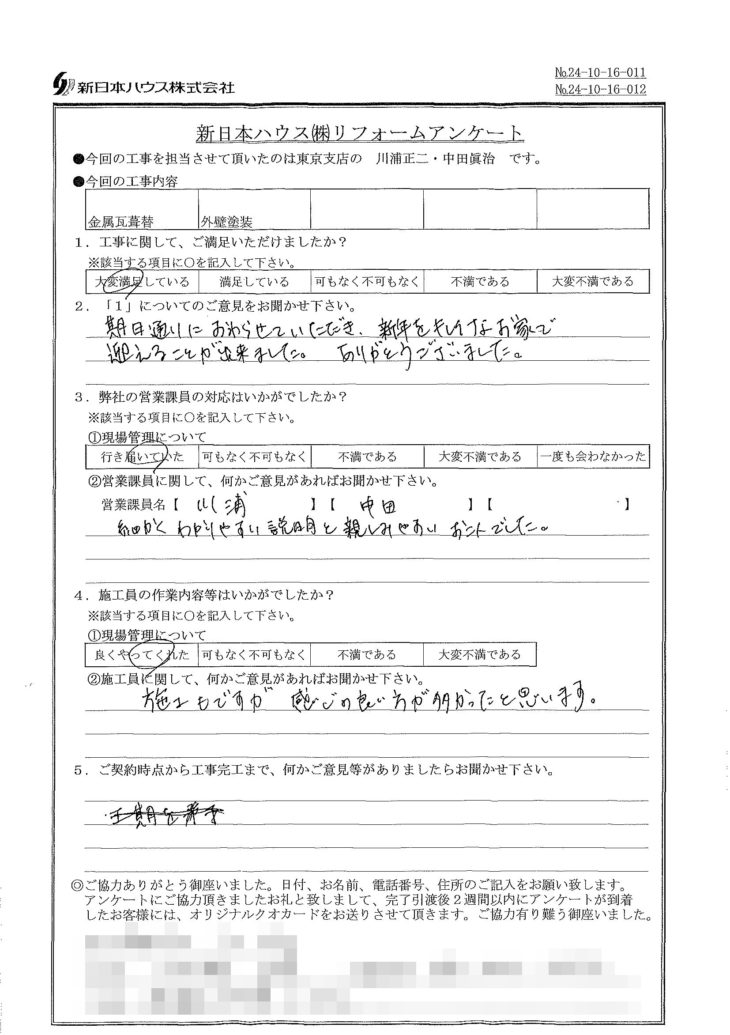 新日本ハウス株式会社
No.24-10-16-011
No.24-10-16-012
新日本ハウス㈱リフォームアンケート
●今回の工事を担当させて頂いたのは東京支店の 川浦正二・中田眞治 です。
●今回の工事内容
金属瓦葺替 外壁塗装
1．工事に関して、ご満足いただけましたか？
※該当する項目に○を記入して下さい。
大変満足している 満足している 可もなく不可もなく 不満である 大変不満である
2．「1」についてのご意見をお聞かせ下さい。
期日通りにおわらせていただき、新年をキレイなお家で
迎えることが出来ました。 ありがとうございました。
3．弊社の営業課員の対応はいかがでしたか？
※該当する項目に○を記入して下さい。
①現場管理について
行き届いていた 可もなく不可もなく 不満である 大変不満である 一度も会わなかった
②営業課員に関して、何かご意見があればお聞かせ下さい。
営業課員名【 川浦 】【 中田 】【 】
細かくわかりやすい説明と親しみやすい お二人でした。
4．施工員の作業内容等はいかがでしたか？
※該当する項目に○を記入して下さい。
①現場管理について
良くやってくれた 可もなく不可もなく 不満である 大変不満である
②施工員に関して、何かご意見があればお聞かせ下さい。
施工もですが 感じの良い方が多かったと思います。
5．ご契約時点から工事完工まで、何かご意見等がありましたらお聞かせ下さい。
◎ご協力ありがとう御座いました。日付、お名前、電話番号、住所のご記入をお願い致します。
アンケートにご協力頂きましたお礼と致しまして、完了引渡後２週間以内にアンケートが到着
したお客様には、オリジナルクオカードをお送りさせて頂きます。ご協力有り難う御座いました。